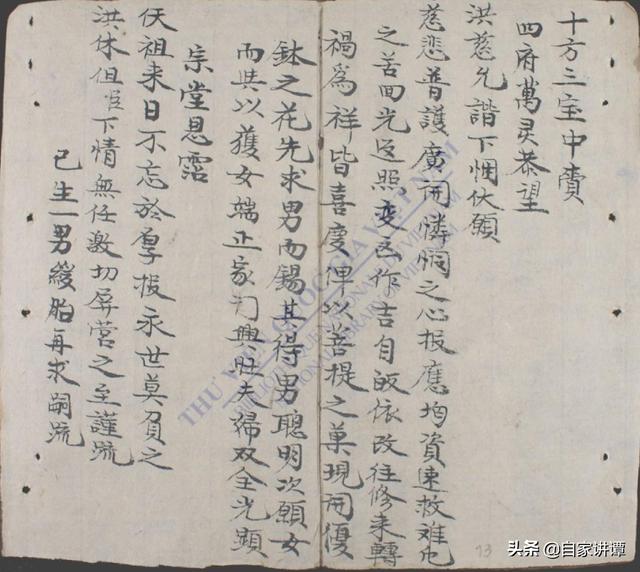 十方三宝中賫
四府萬灵恭望
洪慈允諧下悃伏願
慈悲普護廣開憐憫之心报應均資速救难厄
之苦回光返照变凶作吉自皈依改往修来轉
禍爲祥皆喜慶俾以菩提之菓現開優
鉢之花先求男而錫其得男聰明次願女
而共以獲女端正家門興旺夫婦双全光顕
宗堂恩霑
伏祖来日不忘於厚报永世莫負之
洪休但臣下情無任激切屏营之至謹疏
已生一男緩胎再求嗣疏
THƯ VIỆN QUỐC GIA VIỆT NAM
NATIONAL LIBRARY OF VIETNAM
73
头条 @自家讲谭